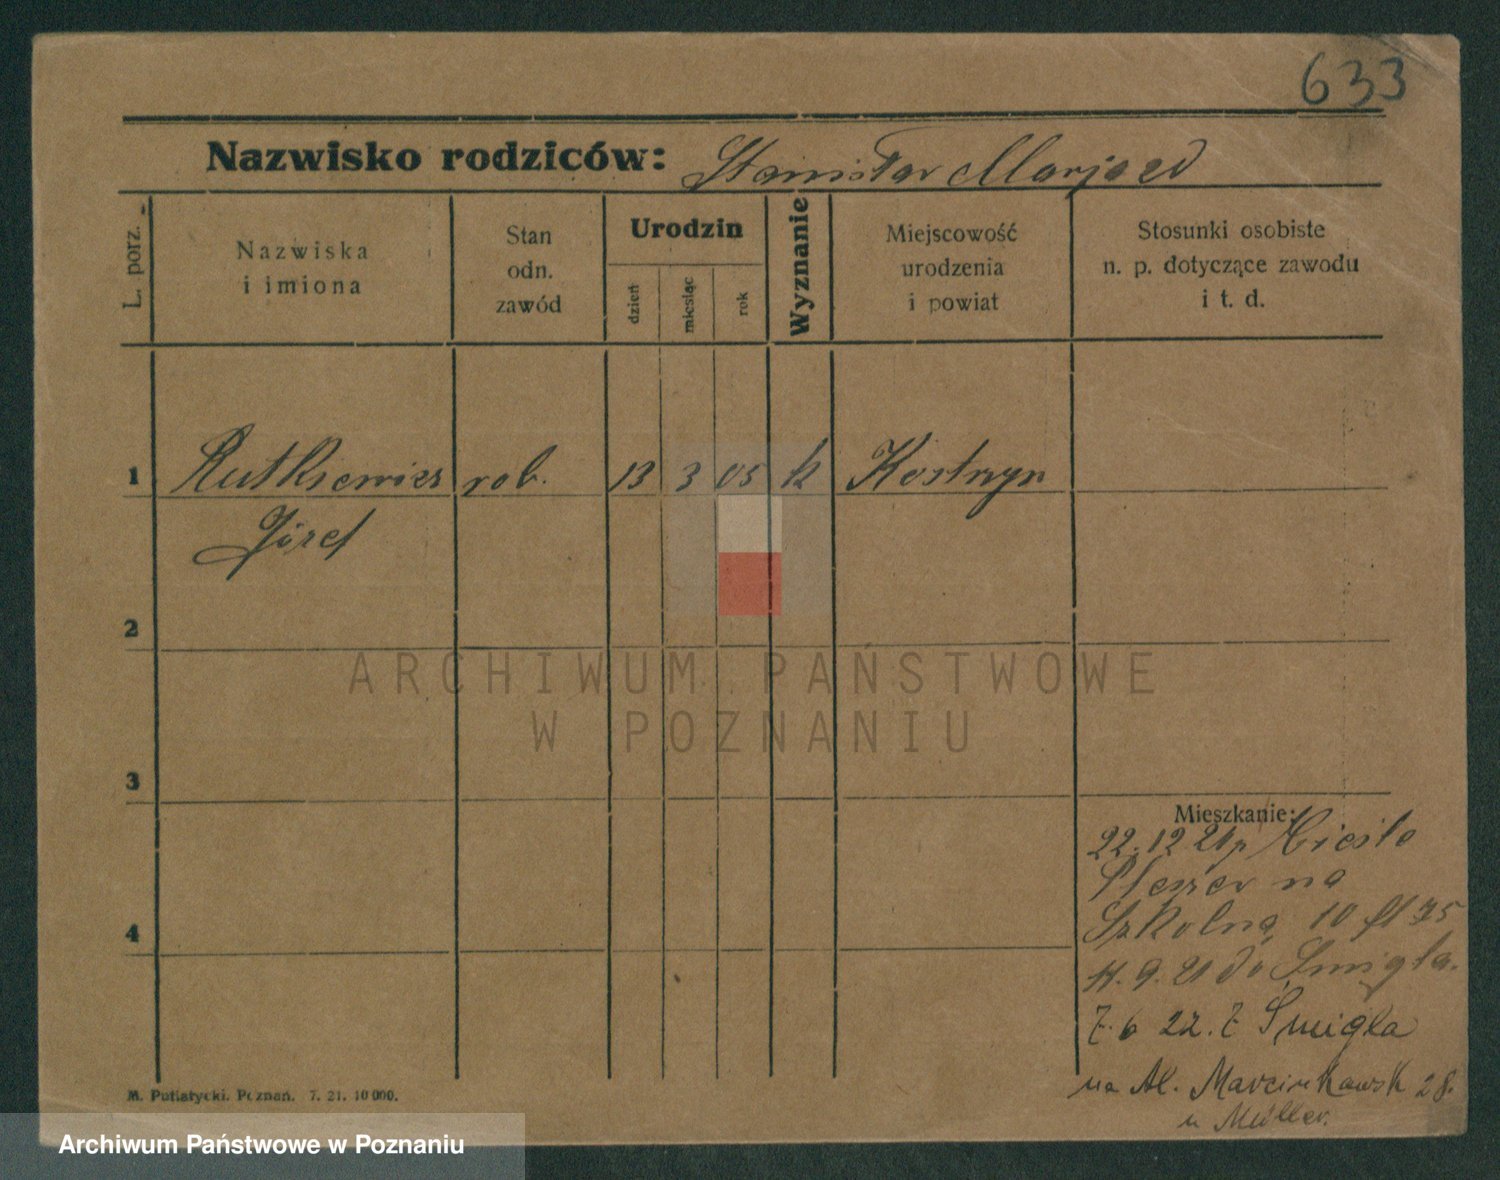 633
Nazwisko rodziców: Stanisław Marja zd
L. porz.
Nazwiska
i imiona
Stan
odn.
zawód
Urodzin
dzień
miesiąc
rok
Wyznanie
Miejscowość
urodzenia
i powiat
Stosunki osobiste
n. p. dotyczące zawodu
i t. d.
1 Rutkiewicz rob. 13 3 05 k Kostrzyn
Józef
2
ARCHIWUM PAŃSTWOWE
W POZNANIU
3
Mieszkanie:
22.12 21
na
4
Szkolną 10
9. 21 do Śmigla.
7. 6 22. z Śmigla
na Al. Marcinkowsk 28.
u Müller.
M. Putiatycki. Poznań. 7. 21. 10 000.
Archiwum Państwowe w Poznaniu